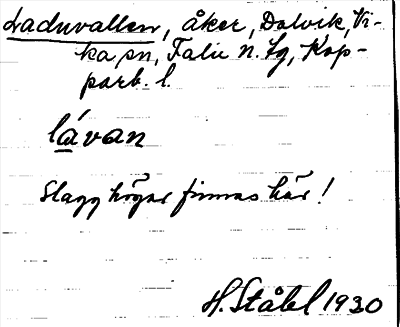 Laduvallen, åker, Dalvik, Vi-
ka sn, Falu n. tg, Kop-
parb. l.
lávan
Slagg högar finnas här!
H. Ståhl 1930